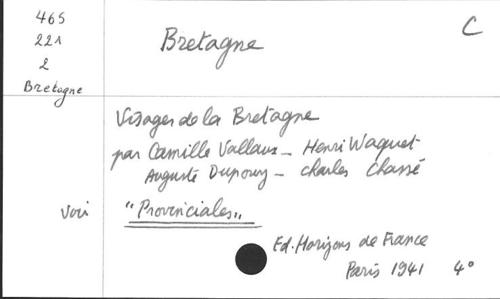 465
221
2
Bretagne
Bretagne
C
Visages de la Bretagne
par Camille Vallaux - Henri Waquet
Auguste Dupouy - Charles Chassé
Voir "Provinciales"
Ed. Horizons de France
Paris 1941 4°